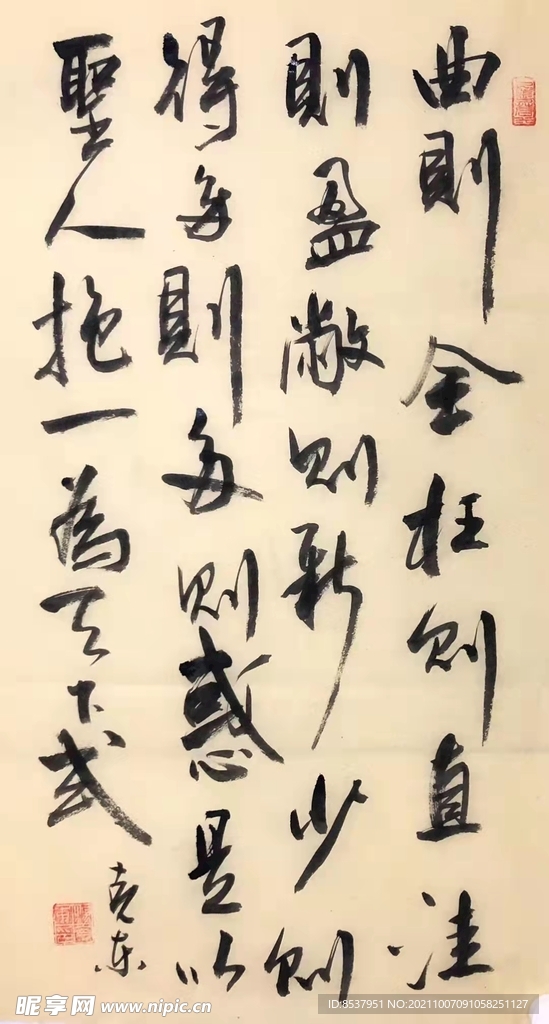 曲則全枉則直洼
則盈敝則新少則
得多則多則惑是以
聖人抱一為天下式
克东
昵享网 www.nipic.cn
ID:8537951 NO:20211007091058251127